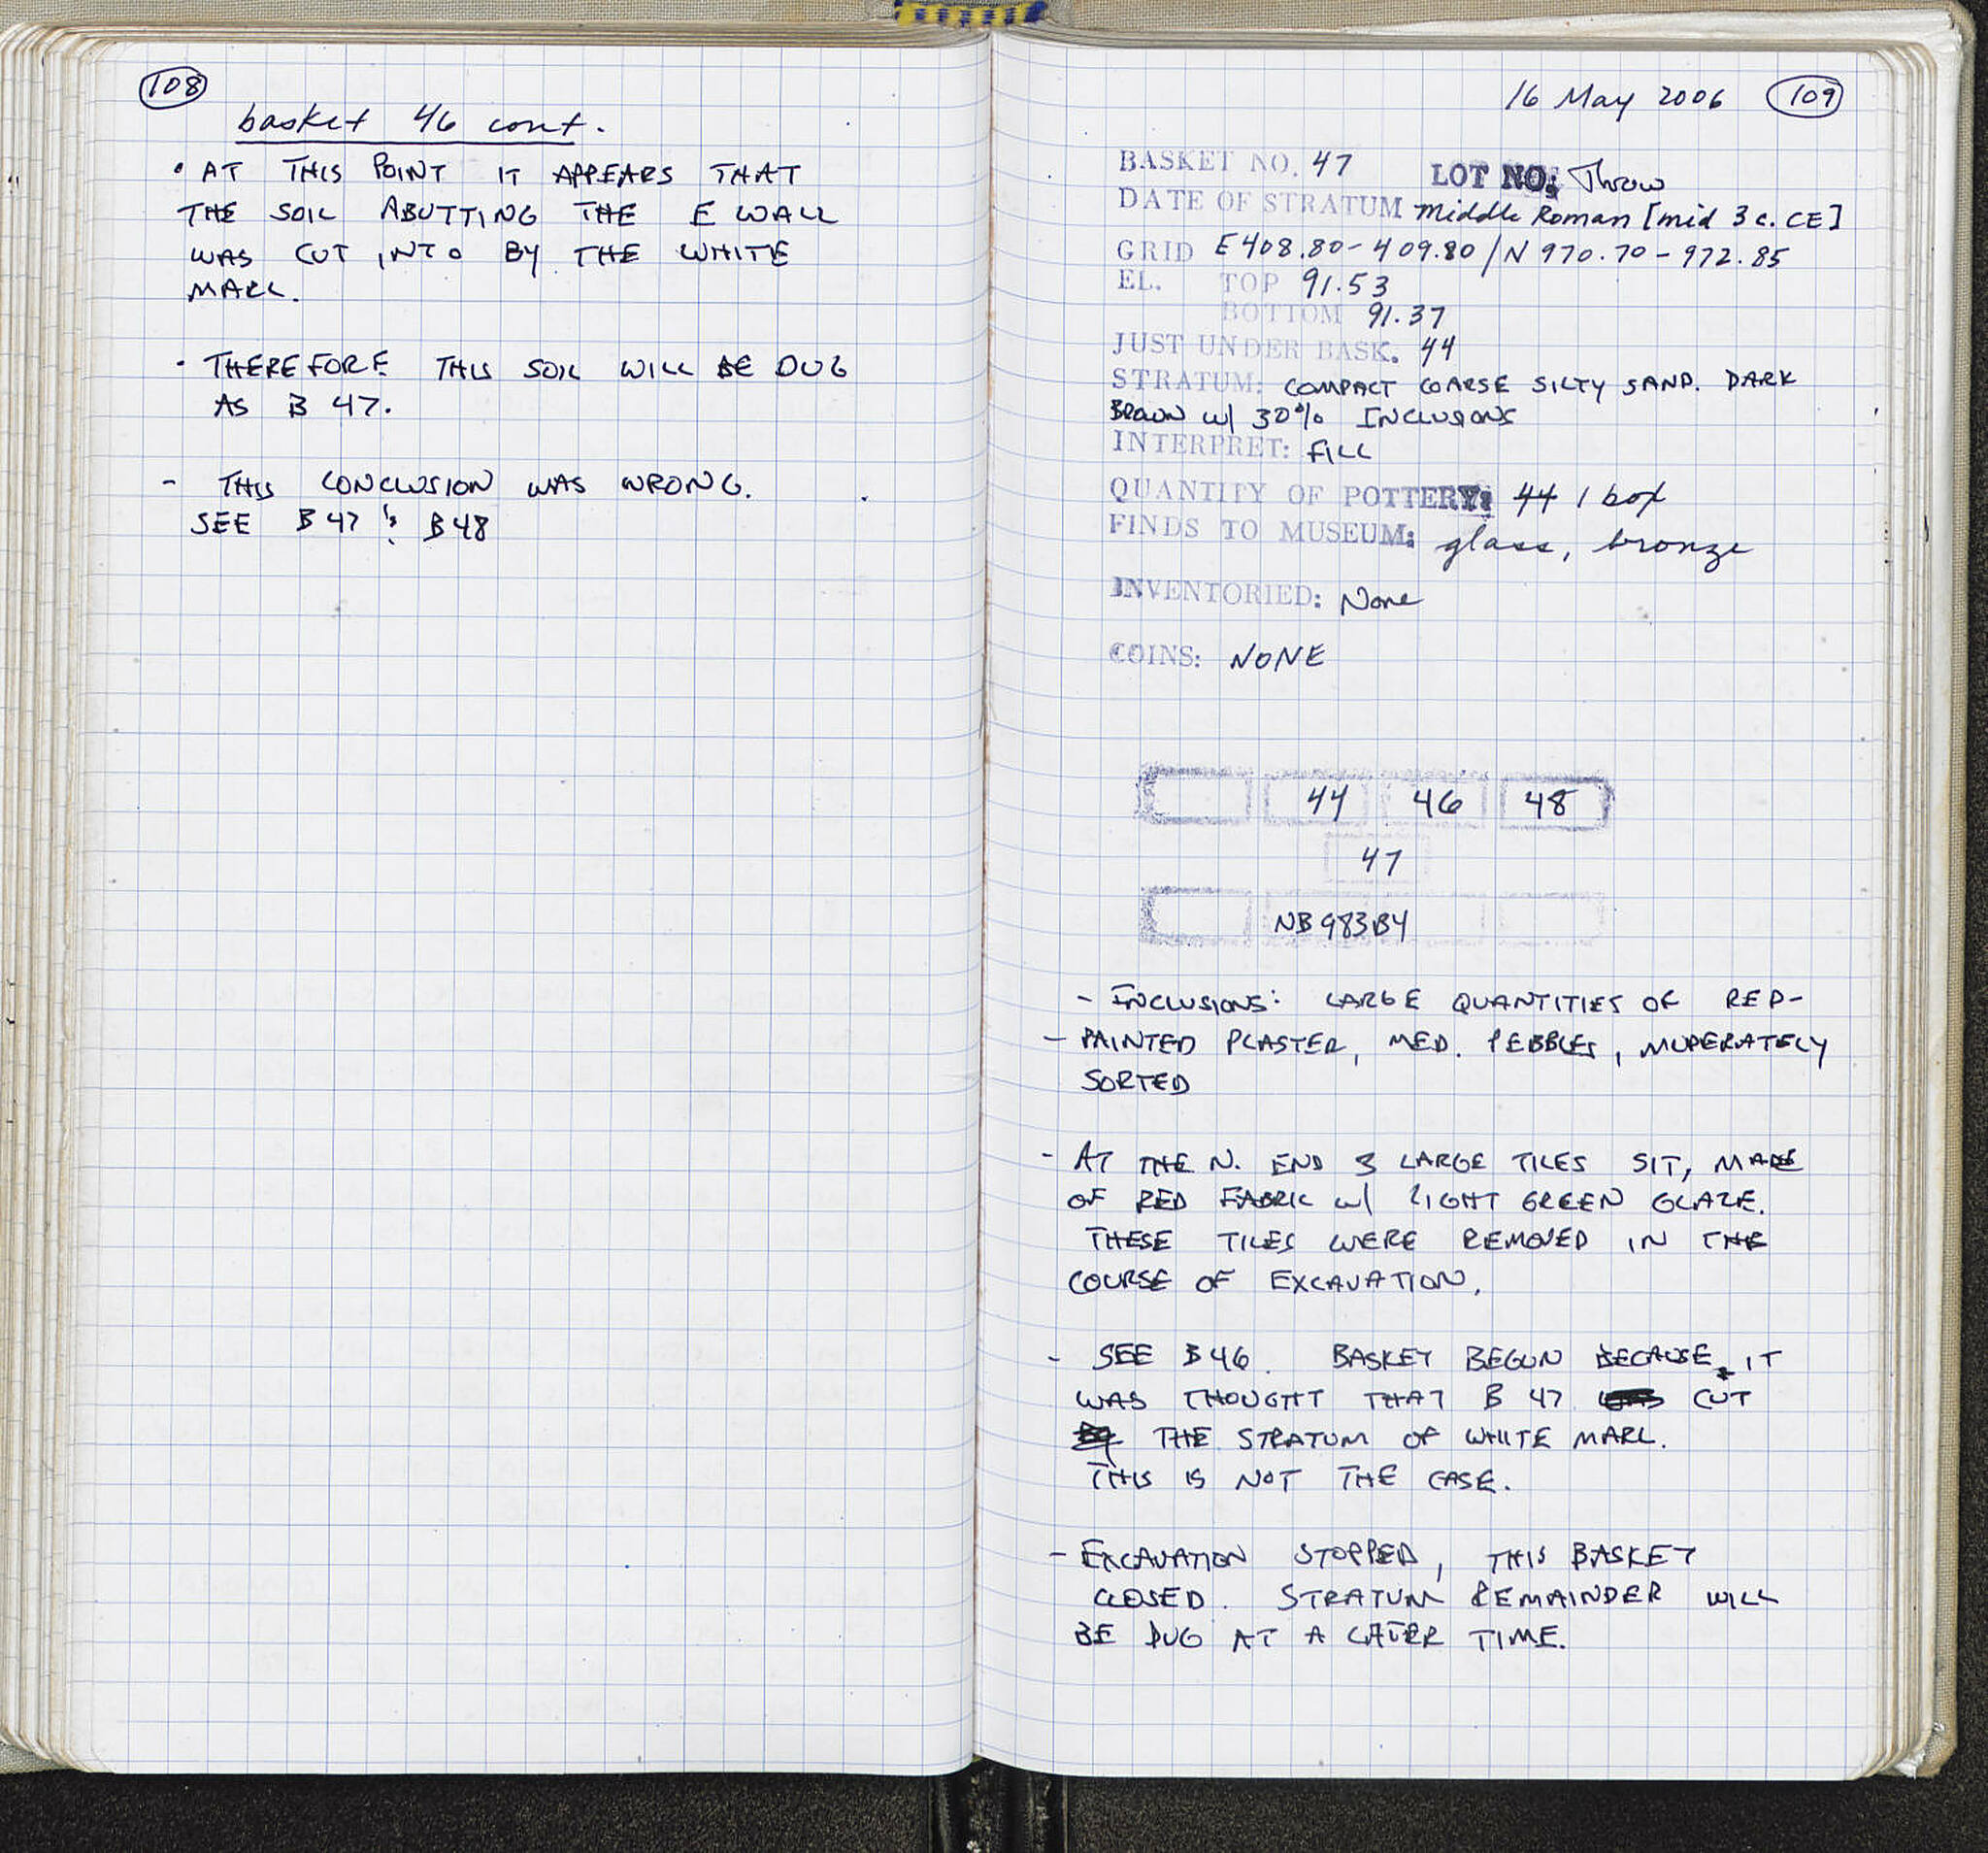 108
basket 46 cont.
• AT THIS POINT IT APPEARS THAT
THE SOIL ABUTTING THE E WALL
WAS CUT INTO BY THE WHITE
MARL.
• THEREFORE THIS SOIL WILL BE DUG
AS B 47.
- THIS CONCLUSION WAS WRONG.
SEE B47 & B48
16 May 2006 109
BASKET NO. 47 LOT NO: Throw
DATE OF STRATUM Middle Roman [mid 3 c. CE]
GRID E408.80-409.80/N970.70-972.85
EL. TOP 91.53
BOTTOM 91.37
JUST UNDER BASK. 44
STRATUM: COMPACT COARSE SILTY SAND. DARK
BROWN w/ 30% INCLUSIONS
INTERPRET: FILL
QUANTITY OF POTTERY: 44 1 box
FINDS TO MUSEUM: glass, bronze
INVENTORIED: None
COINS: NONE
44 46 48
47
NB983B4
- INCLUSIONS: LARGE QUANTITIES OF RED-
- PAINTED PLASTER, MED. PEBBLES, MODERATELY
SORTED
- AT THE N. END 3 LARGE TILES SIT, MADE
OF RED FABRIC w/ LIGHT GREEN GLAZE.
THESE TILES WERE REMOVED IN THE
COURSE OF EXCAVATION.
- SEE B46. BASKET BEGUN BECAUSE IT
WAS THOUGHT THAT B 47 CUT
THE STRATUM OF WHITE MARL.
THIS IS NOT THE CASE.
- EXCAVATION STOPPED, THIS BASKET
CLOSED. STRATUM REMAINDER WILL
BE DUG AT A LATER TIME.